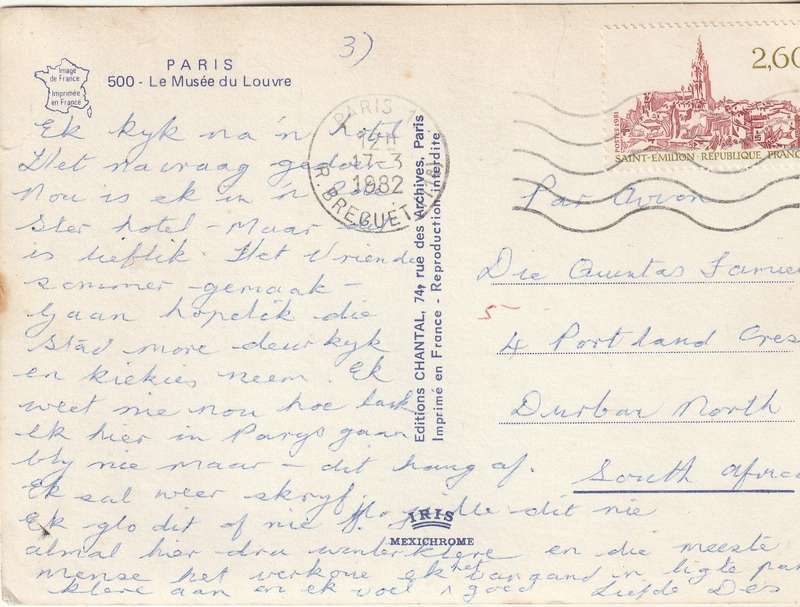 3)
PARIS
500 - Le Musée du Louvre
Image
de France
Imprimée
en France
Ek kyk na 'n hotel
Het navraag gedoen
Nou is ek in 'n
Ster hotel - Maar
is lieflik. Het Vriende
sommer gemaak -
Gaan hopelik die
Stad more deur kyk
en kiekies neem. Ek
weet nie nou hoe lank
Ek hier in Parys gaan
bly nie maar - dit hang af.
Ek sal weer skryf.
Ek glo dit of nie dit nie
almal hier dra winterklere en die meeste
mense het verkoue ek het vanaand in ligte
klere aan en ek voel goed Liefde Des
PARIS
12H
17-3
1982
R. BREGUET
Editions CHANTAL, 74, rue des Archives, Paris
Imprimé en France - Reproduction interdite
IRIS
MEXICHROME
2,60
POSTES 1981
SAINT-EMILION · REPUBLIQUE FRANC
Par Avion
Die
5-
4 Portland Cres
Durban North
South Africa